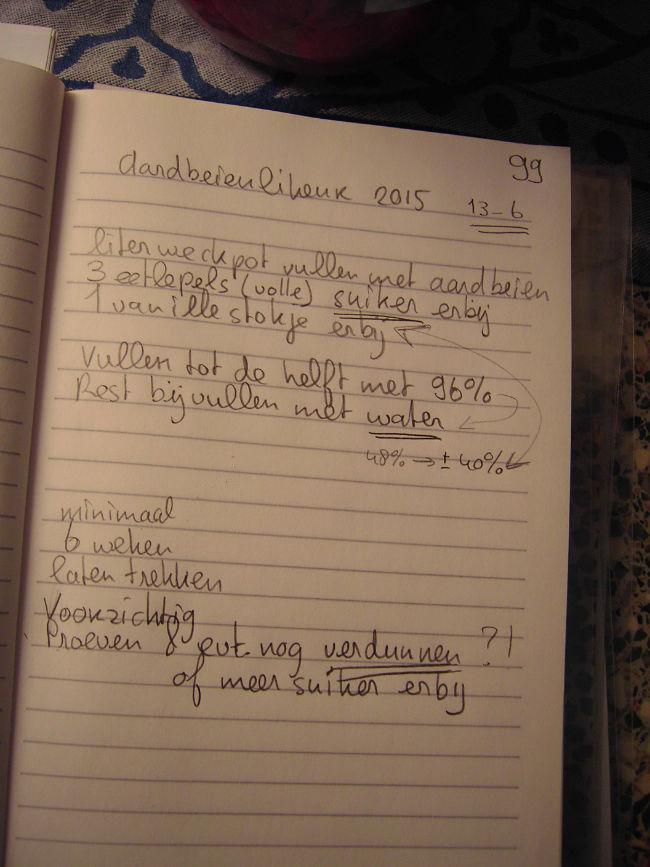 99
aardbeienlikeur 2015 13-6
liter weckpot vullen met aardbeien
3 eetlepels (volle) suiker erbij
1 vanillestokje erbij
Vullen tot de helft met 96%
Rest bijvullen met water
48% → ± 40%
minimaal
6 weken
laten trekken
Voorzichtig
Proeven & evt. nog verdunnen ?!
of meer suiker erbij